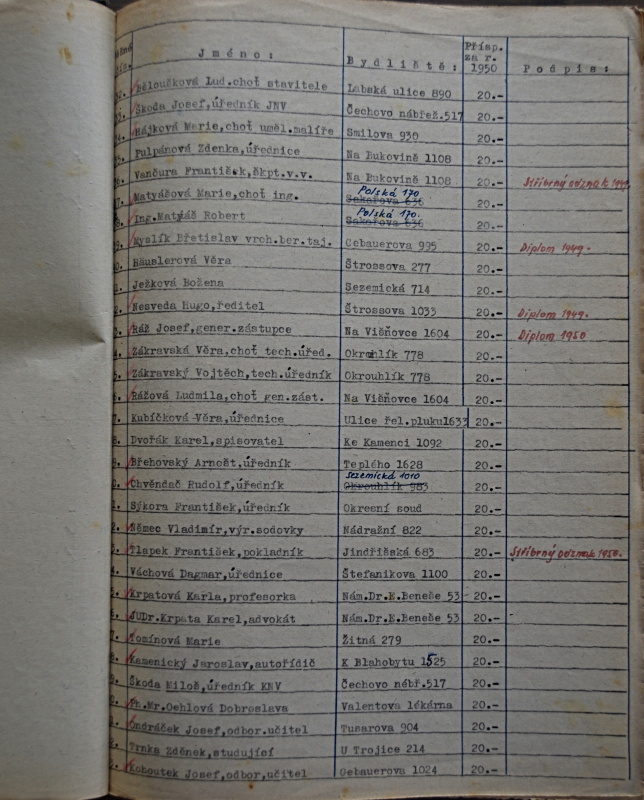 Jméno: Bydliště: Přísp. za r. 1950 Podpis:
Běloušková Lud.choť stavitele Labská ulice 890 20.-
Škoda Josef,úředník JNV Čechovo nábřež.517 20.-
Hájková Marie,choť uměl.malíře Smilova 930 20.-
Pulpánová Zdenka,úřednice Na Bukovině 1108 20.-
Vančura František,škpt.v.v. Na Bukovině 1108 20.- Stříbrný odznak 1949
Matyášová Marie,choť ing. Polská 170 Sakařova 636 20.-
Ing.Matyáš Robert Polská 170. Sakařova 636 20.-
Myslík Břetislav vrch.ber.taj. Gebauerova 995 20.- Diplom 1949.
Häuslerová Věra Štrossova 277 20.-
Ježková Božena Sezemická 714 20.-
Nesveda Hugo,ředitel Štrossova 1033 20.- Diplom 1949.
Ráž Josef,gener.zástupce Na Višňovce 1604 20.- Diplom 1950
Zákravská Věra,choť tech.úřed. Okrouhlík 778 20.-
Zákravský Vojtěch,tech.úředník Okrouhlík 778 20.-
Rážová Ludmila,choť gen.zást. Na Višňovce 1604 20.-
Kubíčková Věra,úřednice Ulice řel.pluku1633 20.-
Dvořák Karel,spisovatel Ke Kamenci 1092 20.-
Břehovský Arnošt,úředník Teplého 1628 20.-
Chvěndač Rudolf,úředník Sezemická 1010 Okrouhlík 983 20.-
Sýkora František,úředník Okresní soud 20.-
Němec Vladimír,výr.sodovky Nádražní 822 20.-
Tlapek František,pokladník Jindřišská 683 20.- Stříbrný odznak 1950.
Váchová Dagmar,úřednice Štefanikova 1100 20.-
Krpatová Karla,profesorka Nám.Dr.E.Beneše 53 20.-
JUDr.Krpata Karel,advokát Nám.Dr.E.Beneše 53 20.-
Tomínová Marie Žitná 279 20.-
Kamenický Jaroslav,autořidič K Blahobytu 1525 20.-
Škoda Miloš,úředník KNV Čechovo nábř.517 20.-
Ph.Mr.Oehlová Dobroslava Valentova lékárna 20.-
Ondráček Josef,odbor.učitel Tusarova 904 20.-
Trnka Zděnek,studující U Trojice 214 20.-
Kohoutek Josef,odbor,učitel Gebauerova 1024 20.-